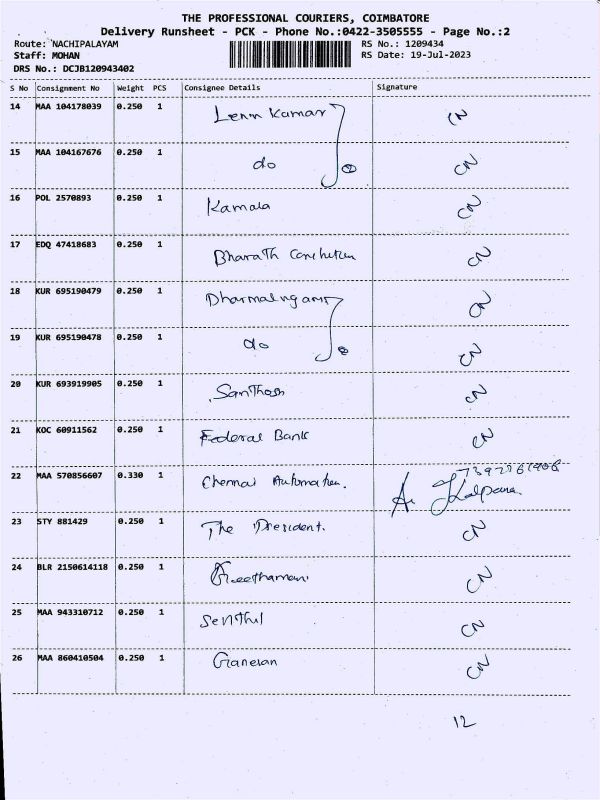 THE PROFESSIONAL COURIERS, COIMBATORE
Delivery Runsheet - PCK - Phone No.:0422-3505555 - Page No.:2
Route: NACHIPALAYAM RS No.: 1209434
Staff: MOHAN RS Date: 19-Jul-2023
DRS No.: DCJB120943402
S No Consignment No Weight PCS Consignee Details Signature
14 MAA 104178039 0.250 1 Lenin Kamar CN
15 MAA 104167676 0.250 1 do CN
16 POL 2570893 0.250 1 Kamala CN
17 EDQ 47418683 0.250 1 Bharath CN
18 KUR 695190479 0.250 1 Dharmalingam CN
19 KUR 695190478 0.250 1 do CN
20 KUR 693919905 0.250 1 Santhosh CN
21 KOC 60911562 0.250 1 Federal Bank CN
22 MAA 570856607 0.330 1 Chennai Automation. Kalpana
23 STY 881429 0.250 1 The President. CN
24 BLR 2150614118 0.250 1 CN
25 MAA 943310712 0.250 1 Senthil CN
26 MAA 860410504 0.250 1 Ganesan CN
12